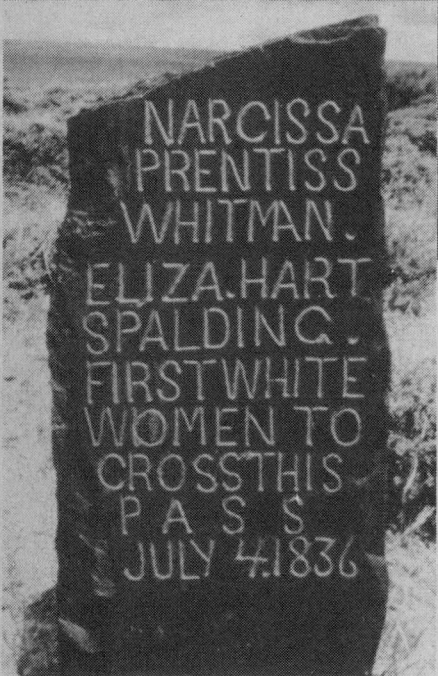 NARCISSA
PRENTISS
WHITMAN.
ELIZA.HART
SPALDING.
FIRST WHITE
WOMEN TO
CROSS THIS
PASS
JULY 4.1836